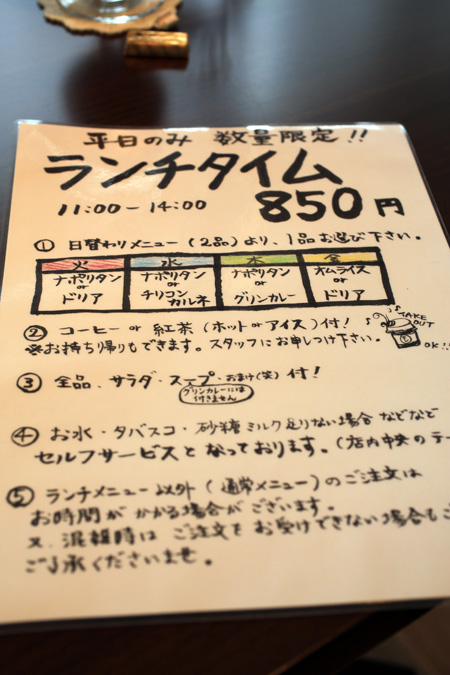 平日のみ 数量限定!!
ランチタイム
11:00-14:00 850円
① 日替わりメニュー(2品)より、1品お選び下さい。
火 水 木 金
ナポリタン or ドリア
ナポリタン or チリコンカルネ
ナポリタン or グリンカレー
オムライス or ドリア
② コーヒー or 紅茶(ホット or アイス)付!
※お持ち帰りもできます。スタッフにお申しつけ下さい。
TAKE OUT OK!!
③ 全品、サラダ・スープ・おまけ(笑)付!
グリンカレーには付きません
④ お水・タバスコ・砂糖ミルク足りない場合などなど
セルフサービスとなっております。(店内中央のテー
⑤ ランチメニュー以外(通常メニュー)のご注文は
お時間がかかる場合がございます。
又、混雑時はご注文をお受けできない場合もご
ご了承くださいませ。